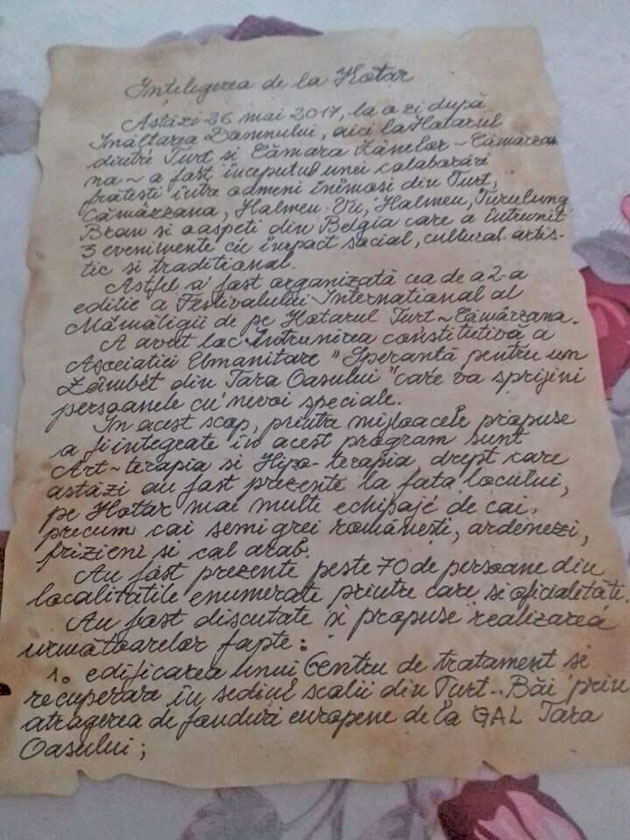 Înțelegerea de la Hotar
Astăzi 26 mai 2017, la o zi după
Înălțarea Domnului, aici la Hotarul
dintre Turt si Cămara Zânelor ~ Cămărzan
na ~ a fost începutul unei colaborări
frătești între oameni inimosi din Turt,
Cămărzana, Halmeu-Vii, Halmeu, Turulung
Bran si oaspeti din Belgia care a întrunit
3 evenimente cu impact social, cultural-artis-
tic si traditional.
Astfel a fost organizată cea de a 2-a
editie a Festivalului International al
Mămăligii de pe Hotarul Turt ~ Cămărzana.
A avut loc Întrunirea constitutivă a
Asociatiei Umanitare "Sperantă pentru un
Zâmbet din Tara Oasului" care va sprijini
persoanele cu nevoi speciale.
In acest scop, printre mijloacele propuse
a fi integrate în acest program sunt
Art-terapia si Hipo-terapia, drept care
astăzi au fost prezente la fata locului,
pe Hotar mai multe echipaje de cai,
precum cai semigrei românesti, ardenezi,
frizieni si cal arab.
Au fost prezente peste 70 de persoane din
localitătile enumerate printre care si oficialităti.
Au fost discutate si propuse realizarea
următoarelor fapte:
1. edificarea unui Centru de tratament si
recuperare în sediul scolii din Turt-Băi prin
atragerea de fonduri europene de la GAL Tara
Oasului;